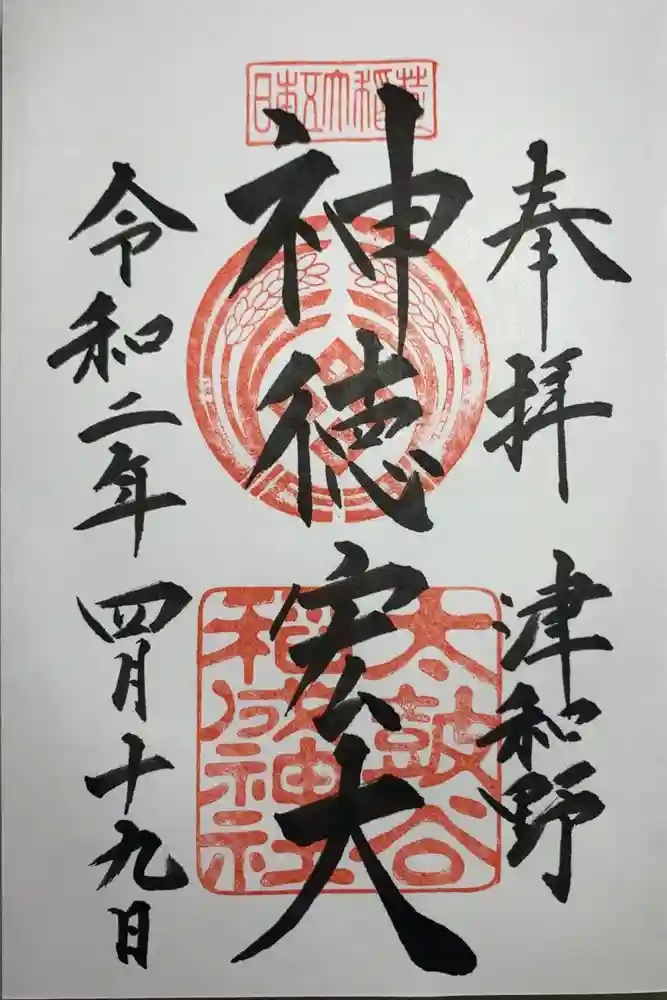 奉拝 津和野
日本五大稲荷
神徳宏大
太鼓谷
稲成神社
令和二年四月十九日